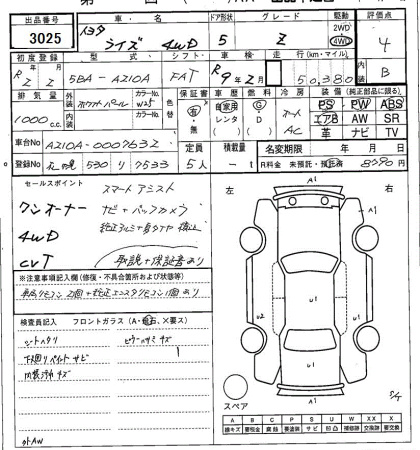 出品番号 車名 ドア形状 グレード 駆動 評価点
3025 トヨタ ライズ 4WD 5 Z 2WD 4WD 4
初度登録 型式 シフト 車検 走行(km・マイル) 内装
R 2 5BA-A210A FAT R9年2月 50,380 B
排気量 外装 ホワイトパール カラーNo. W25 色替 車歴 燃料 冷房 装備(純正部品に限る)
1000 c.c. 内装 カラーNo. 有・無 自家用 レンタ G D オート AC PS PW ABS
エアB AW SR
革 ナビ TV
車台No A210A-0007632 定員 積載量 名変期限 年 月 日
登録No 札幌 530 り 7533 5人 -t R料金 未預託・預託済 8790円
セールスポイント スマートアシスト
ワンオーナー ナビ+バックカメラ
4WD
CVT 取説+保証書あり
※注意事項記入欄(修復・不具合箇所および状態等)
検査員記入 フロントガラス(A・飛石、×要ス)
シートヘタリ
下回りペイントサビ
内装汚れキズ
外AW
左 右
A1
A1
U2 U1 U1
A1
スペア
A B C P S U W X XX
線キズ 要板金 腐蝕 要塗装 サビ 凹凸 補修跡 要交換 交換済